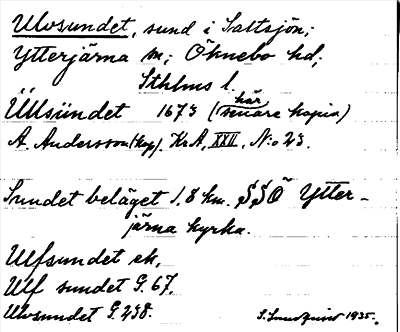 Ulvsundet, sund i Saltsjön;
Ytterjärna sn; Öknebo hd;
Sthlms l.
Ülfsündet 1673 (här senare kopia)
A. Andersson (kop). KrA, XXII, N:o 23.
Sundet beläget 1.8 km. SSÖ Ytter-
järna kyrka.
Ulfsundet ek,
Ulf sundet G. 67.
Ulvsundet G. 238.
S. Lundqvist 1935.